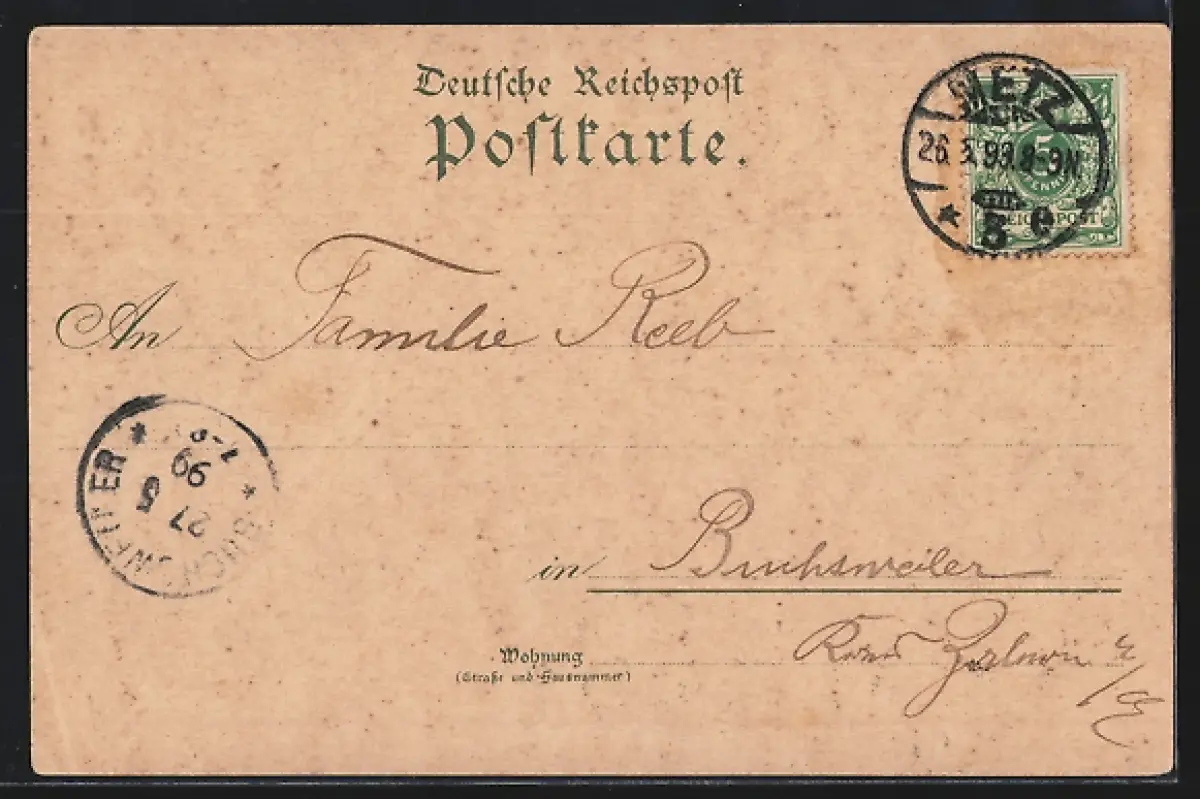 Deutsche Reichspost
Postkarte.
METZ
26.5.99.8-9N
* 5 e
5
PFENNIG
REICHSPOST
An Familie Reeb
* BUCHSWEILER *
27 5
99
7-8
in Buchsweiler
Kreis Zabern i/E
Wohnung
(Straße und Hausnummer)